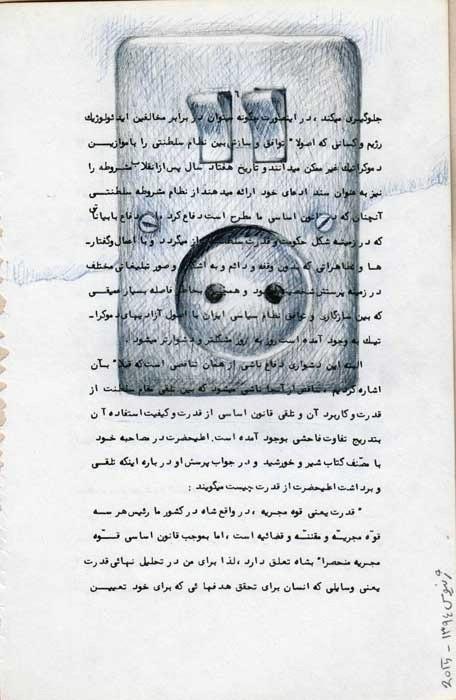 ٦
جلوگیری میکند ، در اینصورت چگونه میتوان در برابر مخالفین ایدئولوژیك
رژیم و کسانی که اصولا" توافق و سازش بین نظام سلطنتی را با موازیـــن
دموکراتیك غیر ممکن میدانند و تاریخ هفتاد سال پس از انقلاب مشروطه را
نیز به عنوان سند ادعای خود ارائه میدهند از نظام مشروطه سلطنتـــی
آنچنان که در قانون اساسی ما مطرح است دفاع کرد دفاع با بیاناتی
که در زمینه شکل حکومت و قدرت سلطنت میگردد و با اعمال وگفتار-
ها و تظاهراتی که بدون وقفه و دائم و به اشکال و صور تبلیغاتی مختلف
در زمینه پرستش میشود و فاصله بسیار عمیقـی
که بین سازگاری و توافق نظام سیاسی ایران با اصول آزادیهای دموکرا-
تیك به وجود آمده است روز به روز مشکلتر و دشوارتر میشود .
البته این دشواری دفاع ناشی از همان تناقضی است که قبلا" بـــآن
اشاره کردیم . تناقض از آنجا ناشی میشود که بین تلقی مقام سلطنت از
قدرت و کاربرد آن و تلقی قانون اساسی از قدرت و کیفیت استفاده آن
بتدریج تفاوت فاحشی بوجود آمده است. اعلیحضرت در مصاحبه خـود
با مصّنف کتاب شیر و خورشید و در جواب پرسش او در باره اینکه تلقـی
و برداشت اعلیحضرت از قدرت چیست میگویند :
" قدرت یعنی قوه مجریه ، در واقع شاه در کشور ما رئیس هر ســه
قوّه مجریّـه و مقننـّه و قضائیه است ، اما بموجب قانون اساسی قـــوّه
مجریه منحصرا" بشاه تعلق دارد ، لذا برای من در تحلیل نهائی قدرت
یعنی وسایلی که انسان برای تحقق هدفهائی که برای خود تعییـــن
2015 - ١٣٩٤